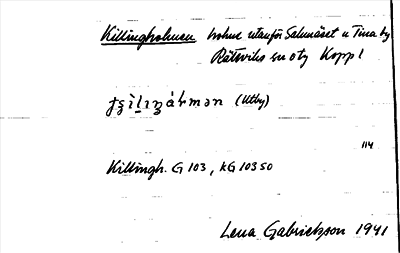 Killingholmen holme utanför Salunäset u Tina by
Rättviks sn oty Kopp l
(Utby)
114
Killingh. G 103, kG 103 50
Lena Gabrielsson 1941